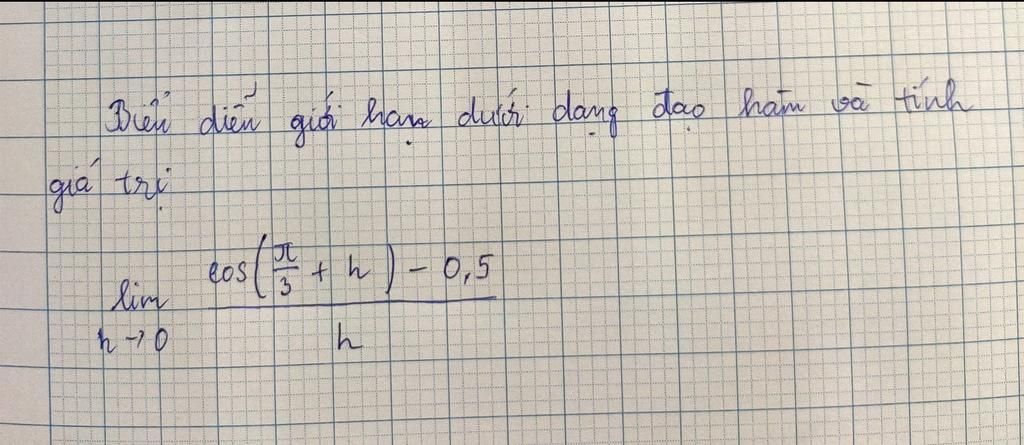 Biểu diễn giới hạn dưới dạng đạo hàm và tính
giá trị
lim_{h→0} \frac{cos(\frac{π}{3} + h) - 0,5}{h}